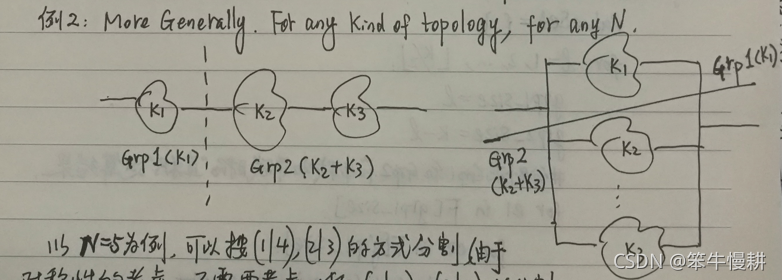 例2: More Generally. For any kind of topology, for any N.
K1
K2
K3
Grp1(K1)
Grp2(K2+K3)
K1
Grp1(K1)
K2
Grp2
(K2+K3)
⋮
以 N=5为例, 可以按(1|4),(2|3)的方式分割,由于
CSDN @笨牛慢耕